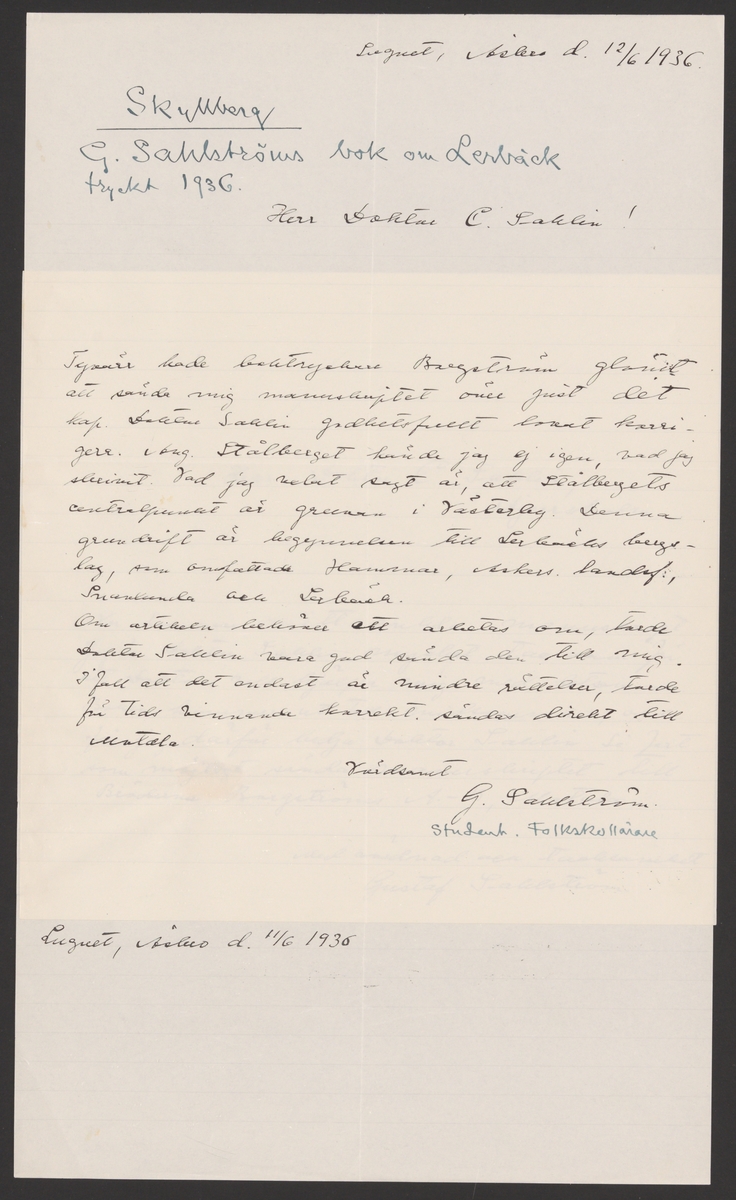 Lugnet, Åsbro d. 12/6 1936.
Skyllberg
G. Sahlströms bok om Lerbäck
tryckt 1936.
Herr Doktor C. Sahlin!
Tyvärr hade boktryckare Borgström glömt
att sända mig manuskriptet över just det
kap. Doktor Sahlin godhetsfullt lovat korri-
gera. Ang. Stålberget kände jag ej igen, vad jag
skrivit. Vad jag velat sagt är, att Stålbergets
centralpunkt är gruvan i Västerby. Denna
grundrift är begynnelsen till Lerbäcks bergs-
lag, som omfattade Hammar, Askers. landsf:,
Snavlunda och Lerbäck.
Om artikeln behöver ett arbetas om, torde
Doktor Sahlin vara god sända den till mig.
I fall att det endast är mindre rättelser, torde
för tids vinnande korrekt. sändas direkt till
Motala.
Värdsamt
G. Sahlström.
Student. Folkskollärare
Lugnet, Åsbro d. 11/6 1936